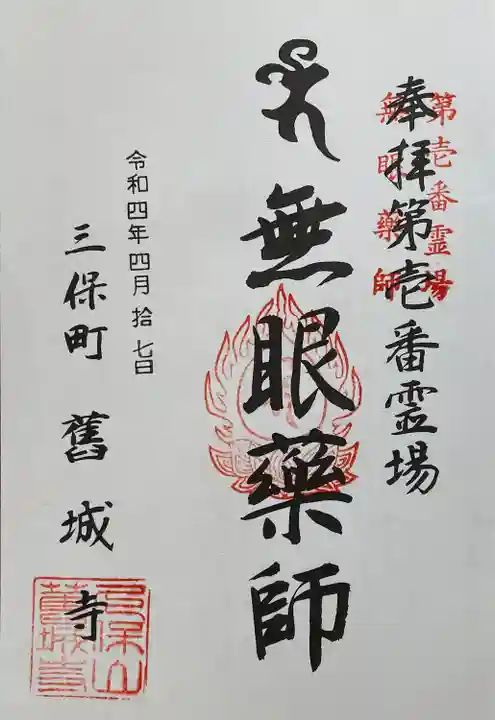 奉拝第壱番霊場
第壱番霊場
無眼薬師
無眼藥師
令和四年四月拾七日
三保町 舊城寺
舊城寺